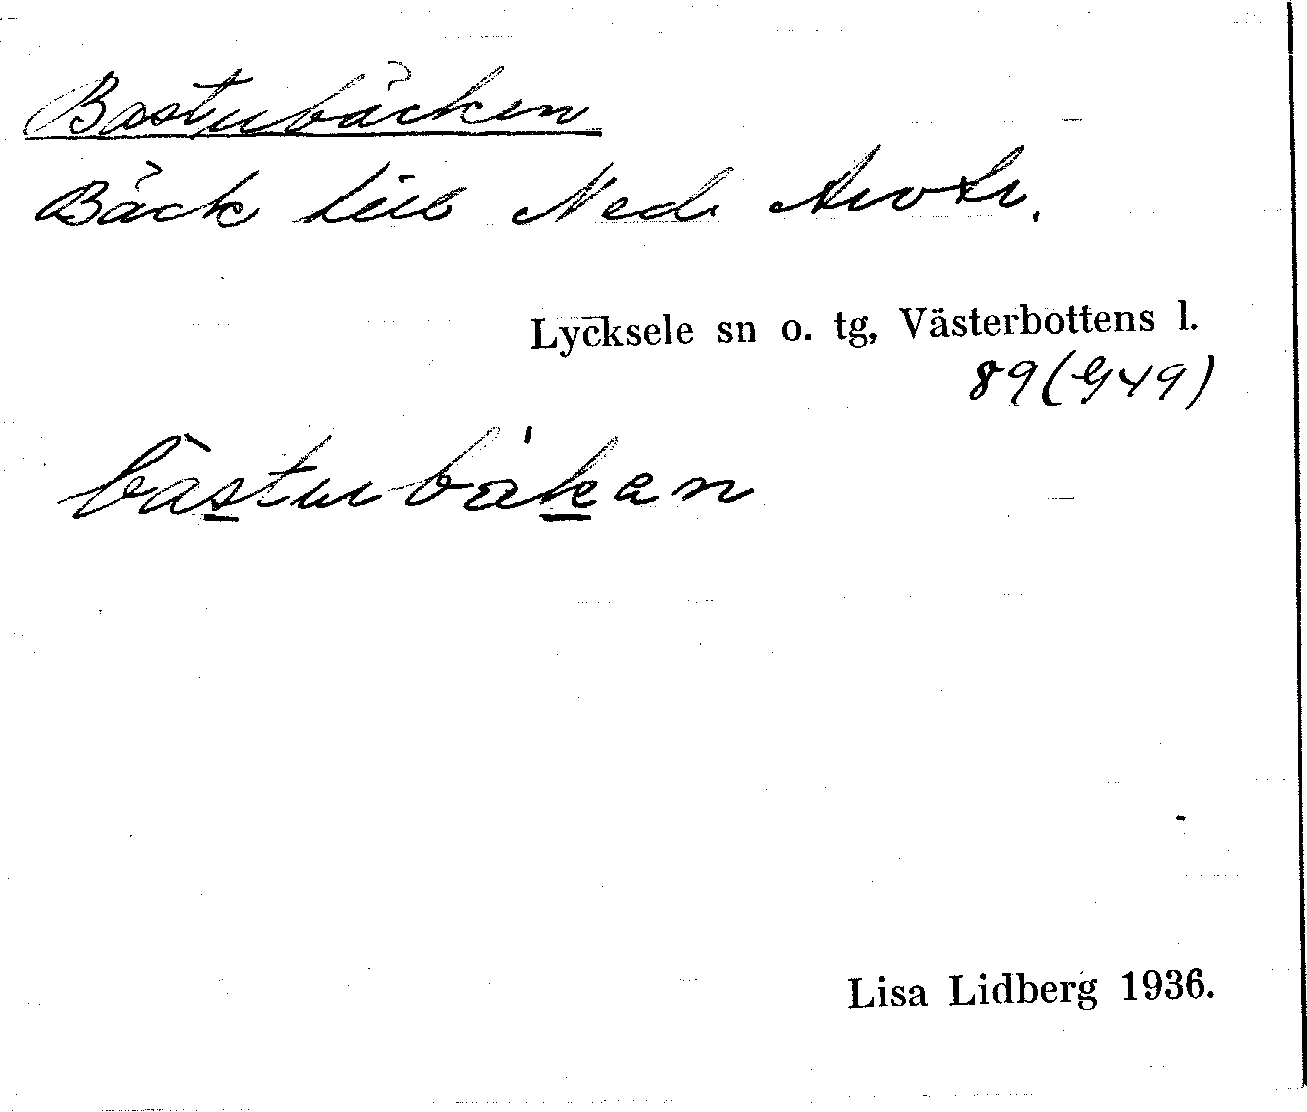 Bastubäcken
Bäck till Ned.
Lycksele sn o. tg, Västerbottens l.
89 (G49)
bàstubákan
Lisa Lidberg 1936.